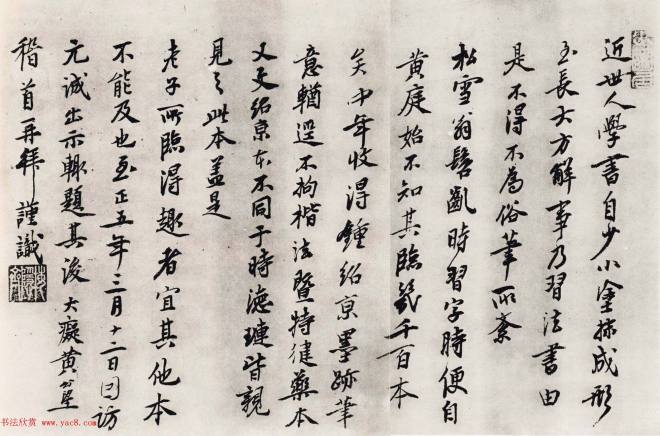 近世人學書自少小塗抹成形
至長大方解事乃習法書由
是不得不為俗筆所紊
松雪翁髫齓時習字時便自
黃庭始不知其臨幾千百本
矣中年收得鍾紹京墨跡筆
意輶逕不拘楷法暨特健藥本
又天紹京本不同于時德璉皆親
見之此本蓋是
老子所臨得趣者宜其他本
不能及也至正五年三月十二日因訪
元誠出示輙題其後大癡黃公望
稽首再拜謹識
书法欣赏 www.yac8.com